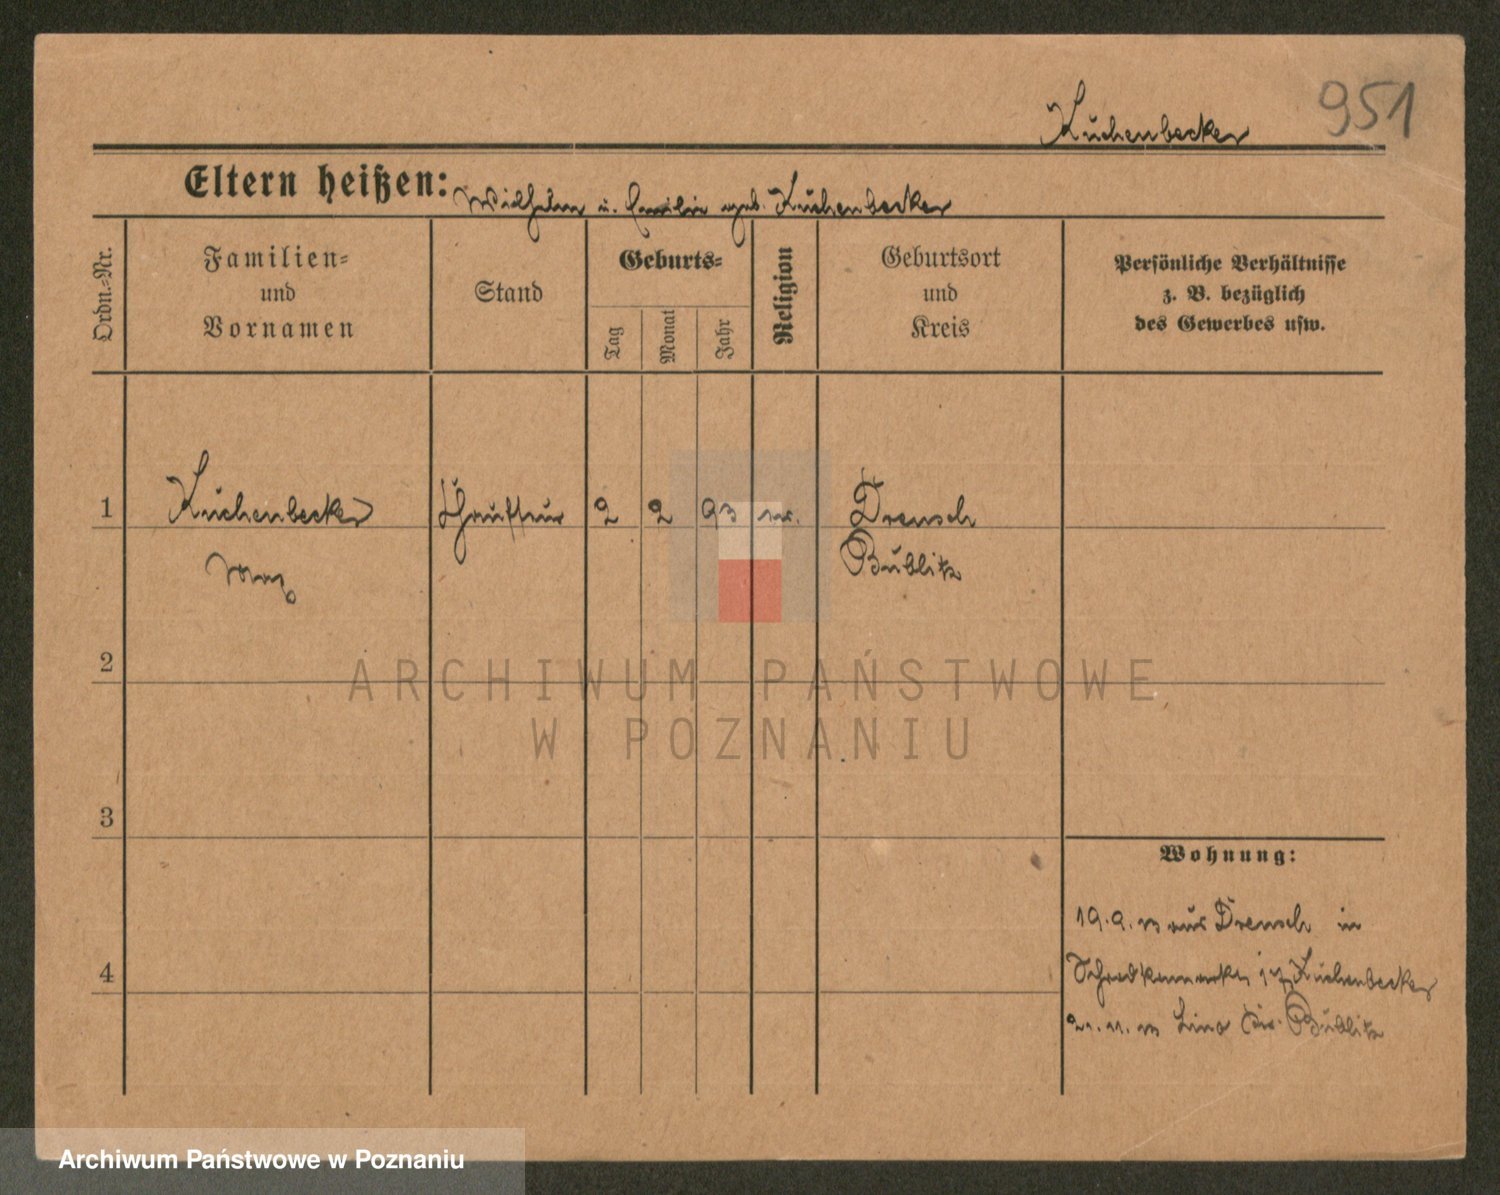 951
Kuchenbecker
Eltern heißen: Wilhelm u. Emilie geb. Kuchenbecker
Ordn.-Nr.
Familien-
und
Vornamen
Stand
Geburts-
Tag
Monat
Jahr
Religion
Geburtsort
und
Kreis
Persönliche Verhältnisse
z. B. bezüglich
des Gewerbes usw.
1
Kuchenbecker
Max
Chauffeur
2
2
93
ev.
Drensch
Bublitz
2
3
4
Wohnung:
19.9. aus Drensch in
Kuchenbecker
21.11. Bublitz
ARCHIWUM PAŃSTWOWE
W POZNANIU
Archiwum Państwowe w Poznaniu